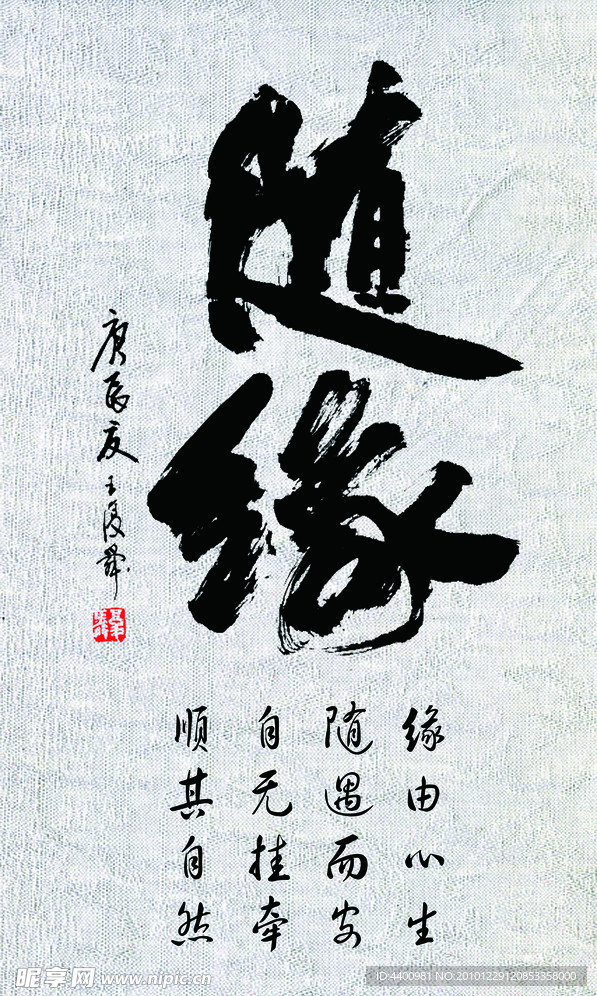 随缘
缘由心生
随遇而安
自无挂牵
顺其自然
庚辰夏王
昵享网 www.nipic.cn
ID:4400981 NO:20101229120853358000